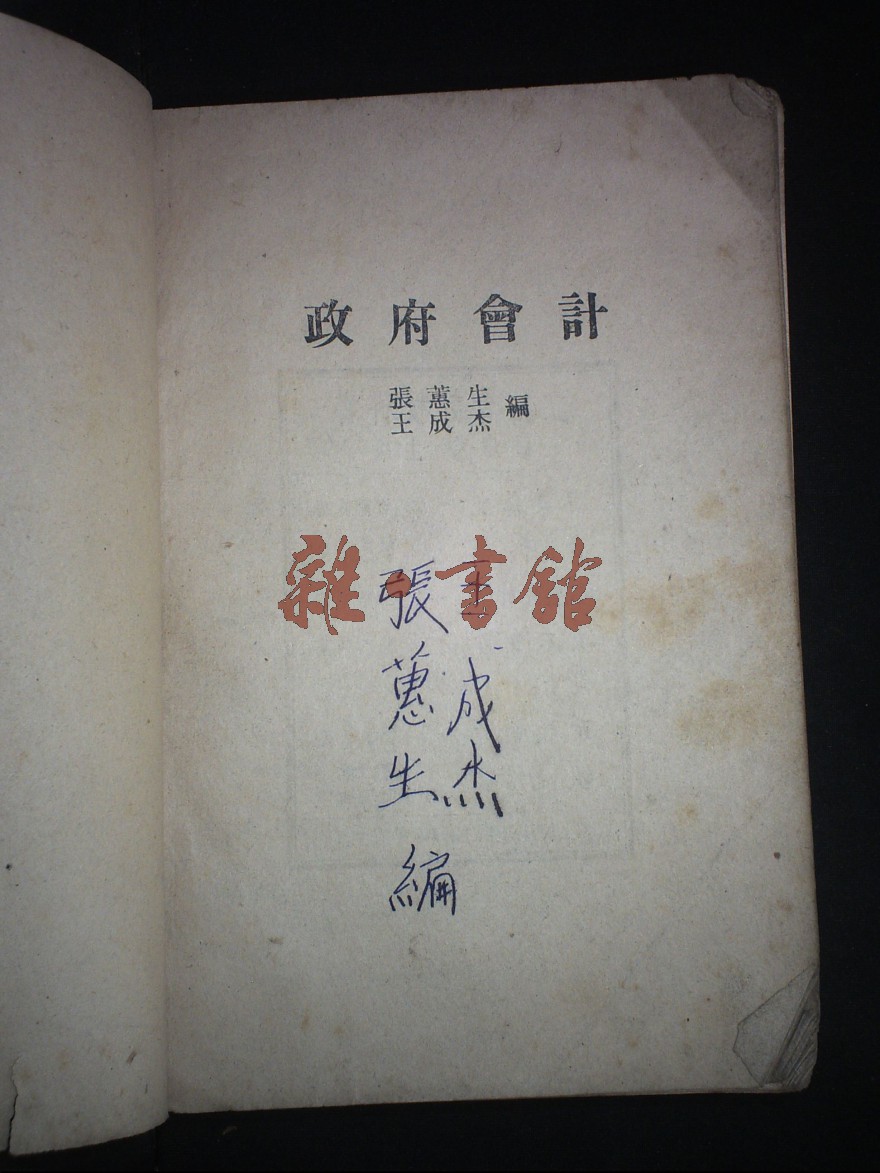 政府會計
張蕙生
王成杰
編
雜書館
張蕙生
王成杰
編